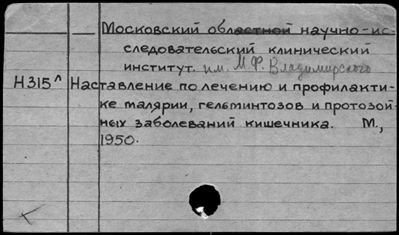 — Московский областной научно-ис-
следовательский клинический
институт. им. М.Ф. Владимирского
Н315^л Наставление по лечению и профилакти-
ке малярии, гельминтозов и протозой-
ных заболеваний кишечника. М.,
1950.